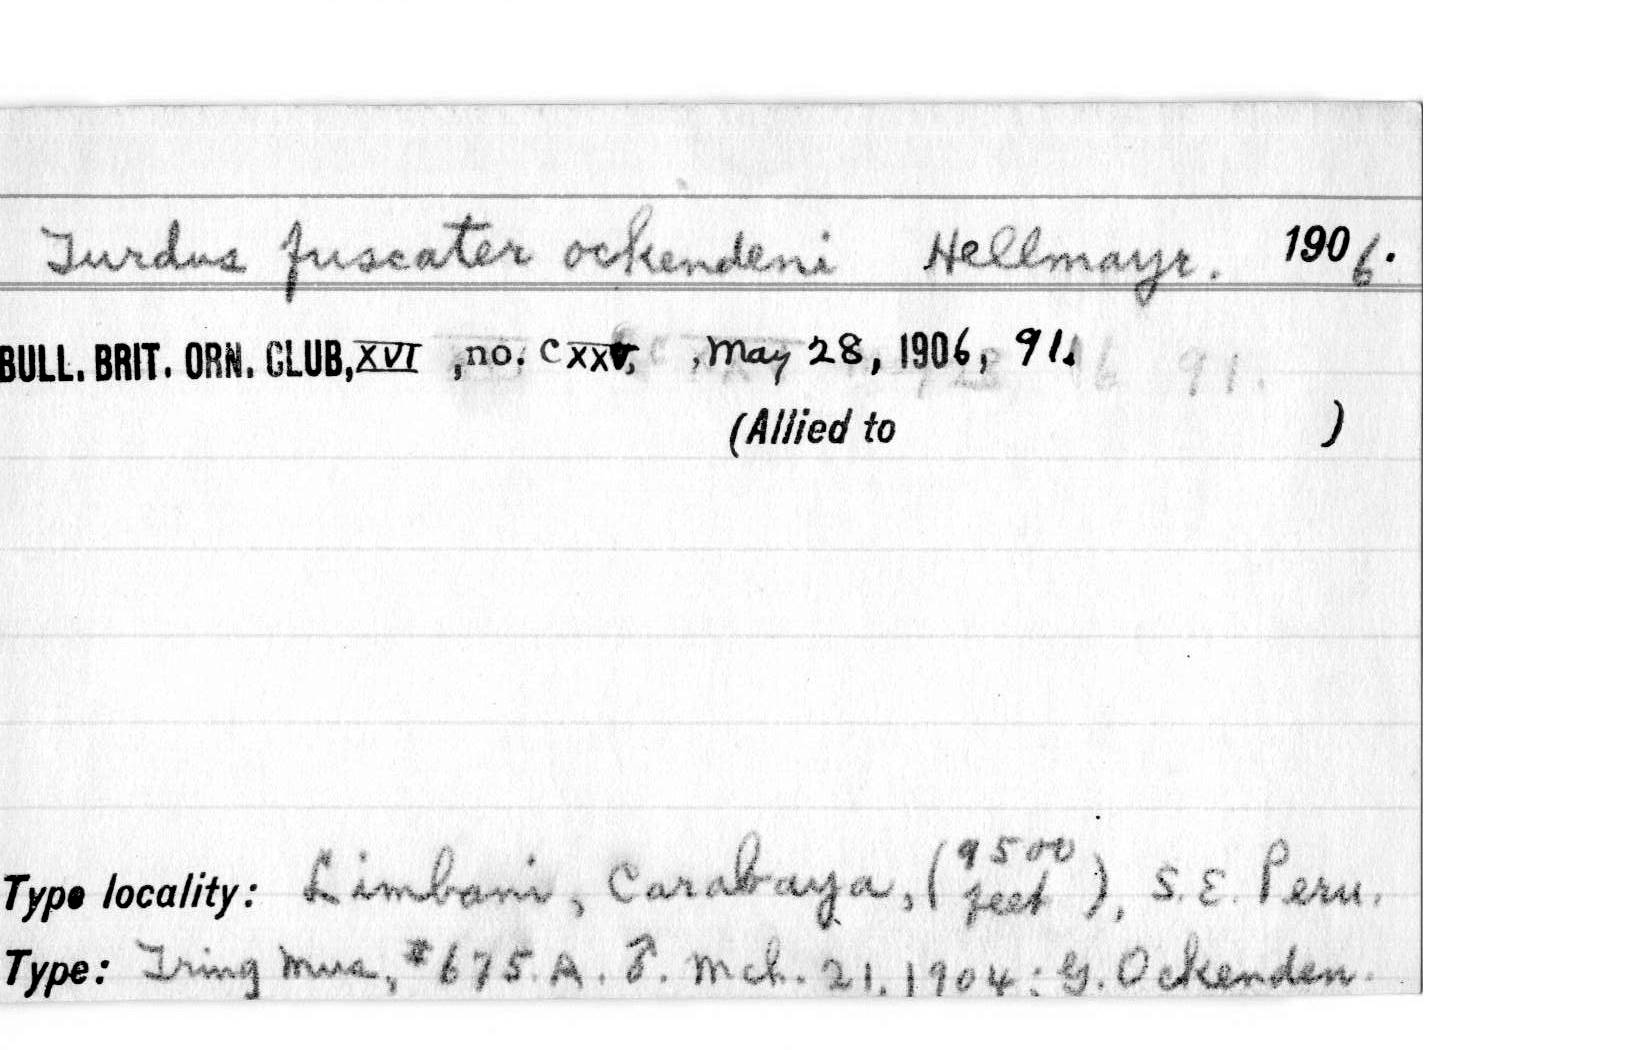 Turdus fuscater ockendeni Hellmayr. 1906.
BULL. BRIT. ORN. CLUB, XVI, no. CXXV, May 28, 1906, 91.
(Allied to )
Type locality: Limbani, Carabaya, (9500 feet), S.E. Peru.
Type: Tring Mus, #675.A. ♂. Mch. 21, 1904: G. Ockenden.